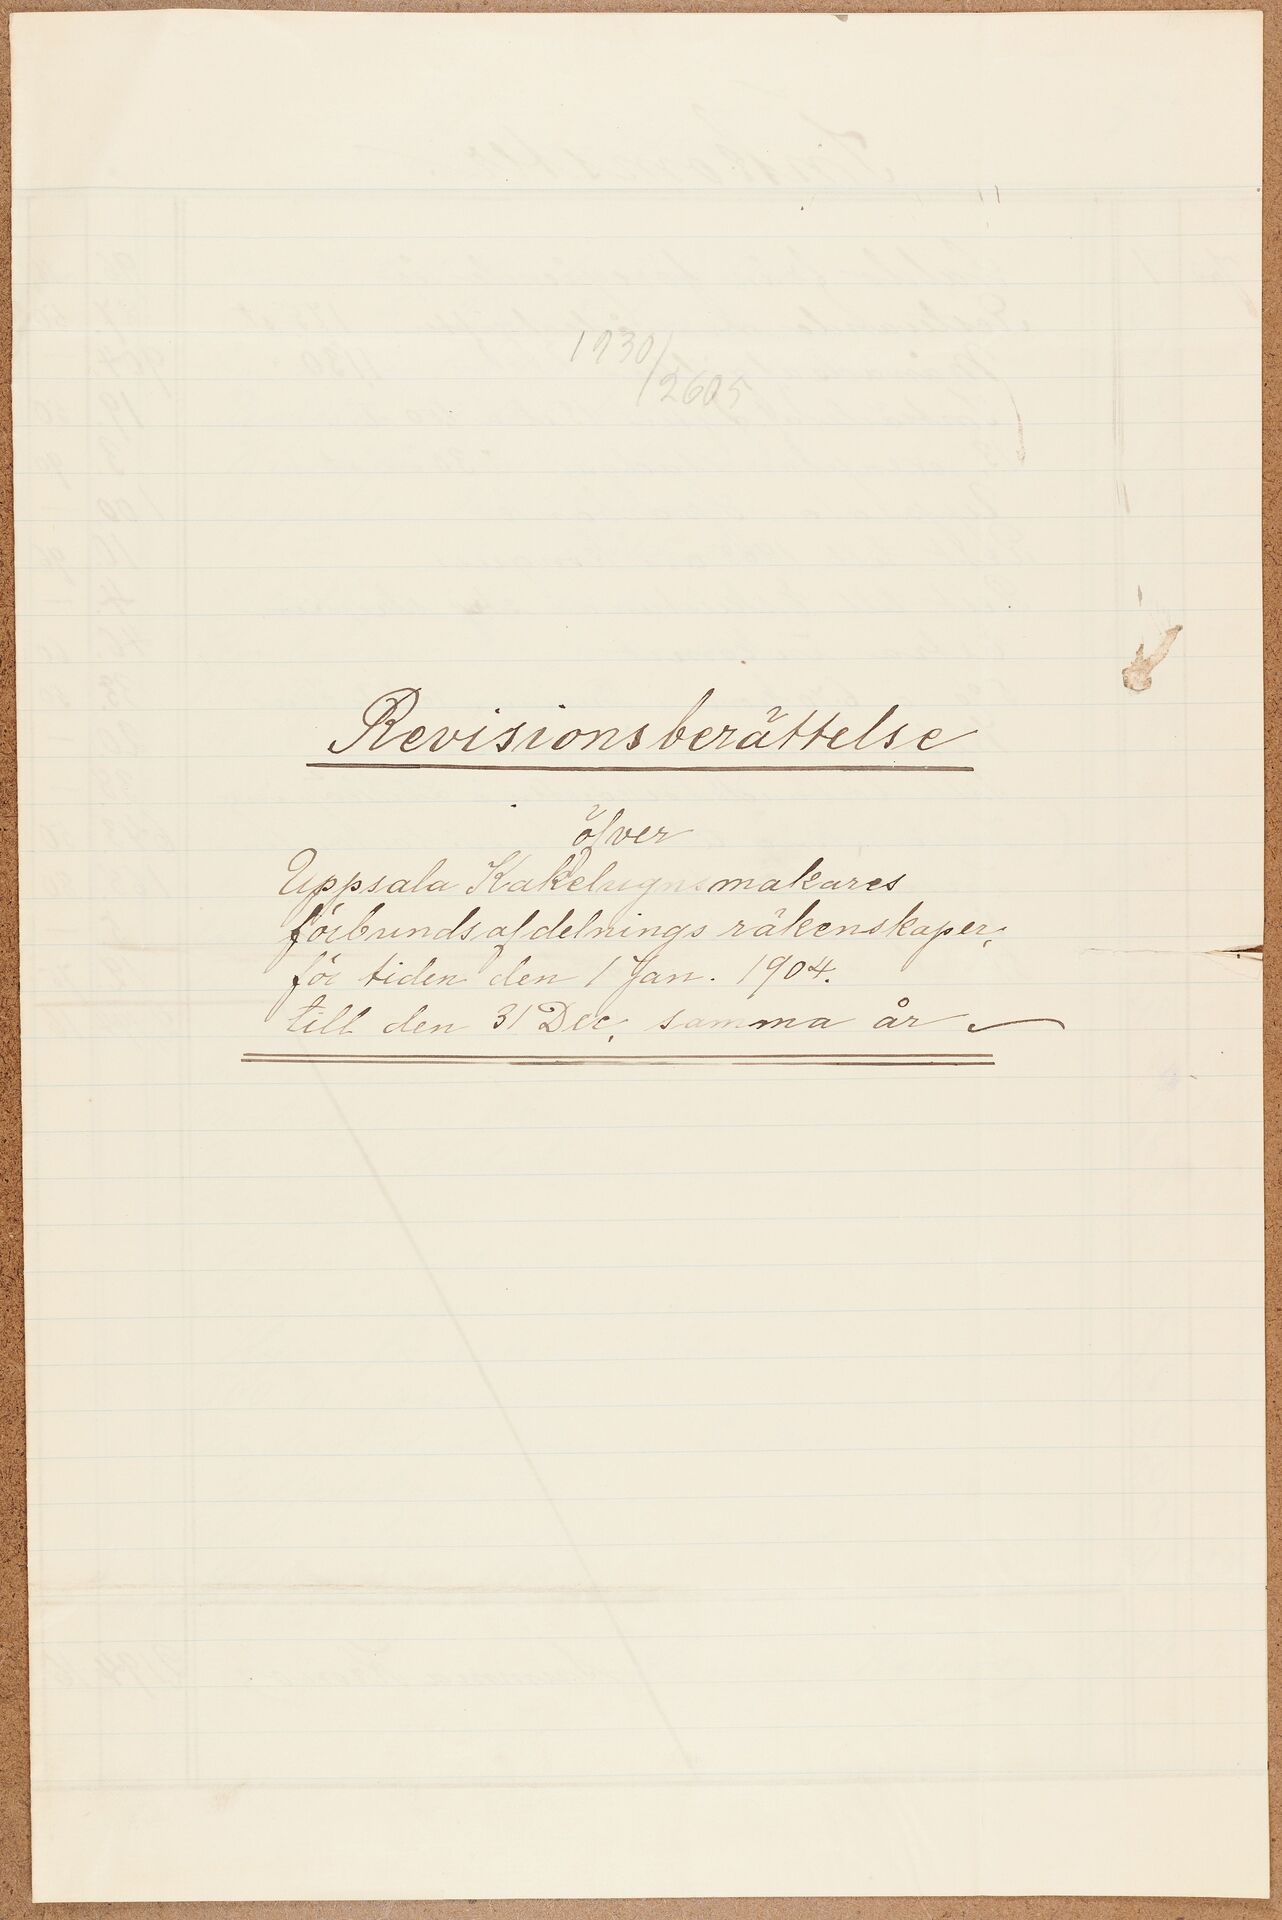 1930/
/2605
Revisionsberättelse
öfver
Uppsala Kakelugnsmakares
förbundsafdelnings räkenskaper,
för tiden den 1 Jan. 1904.
till den 31 Dec, samma år